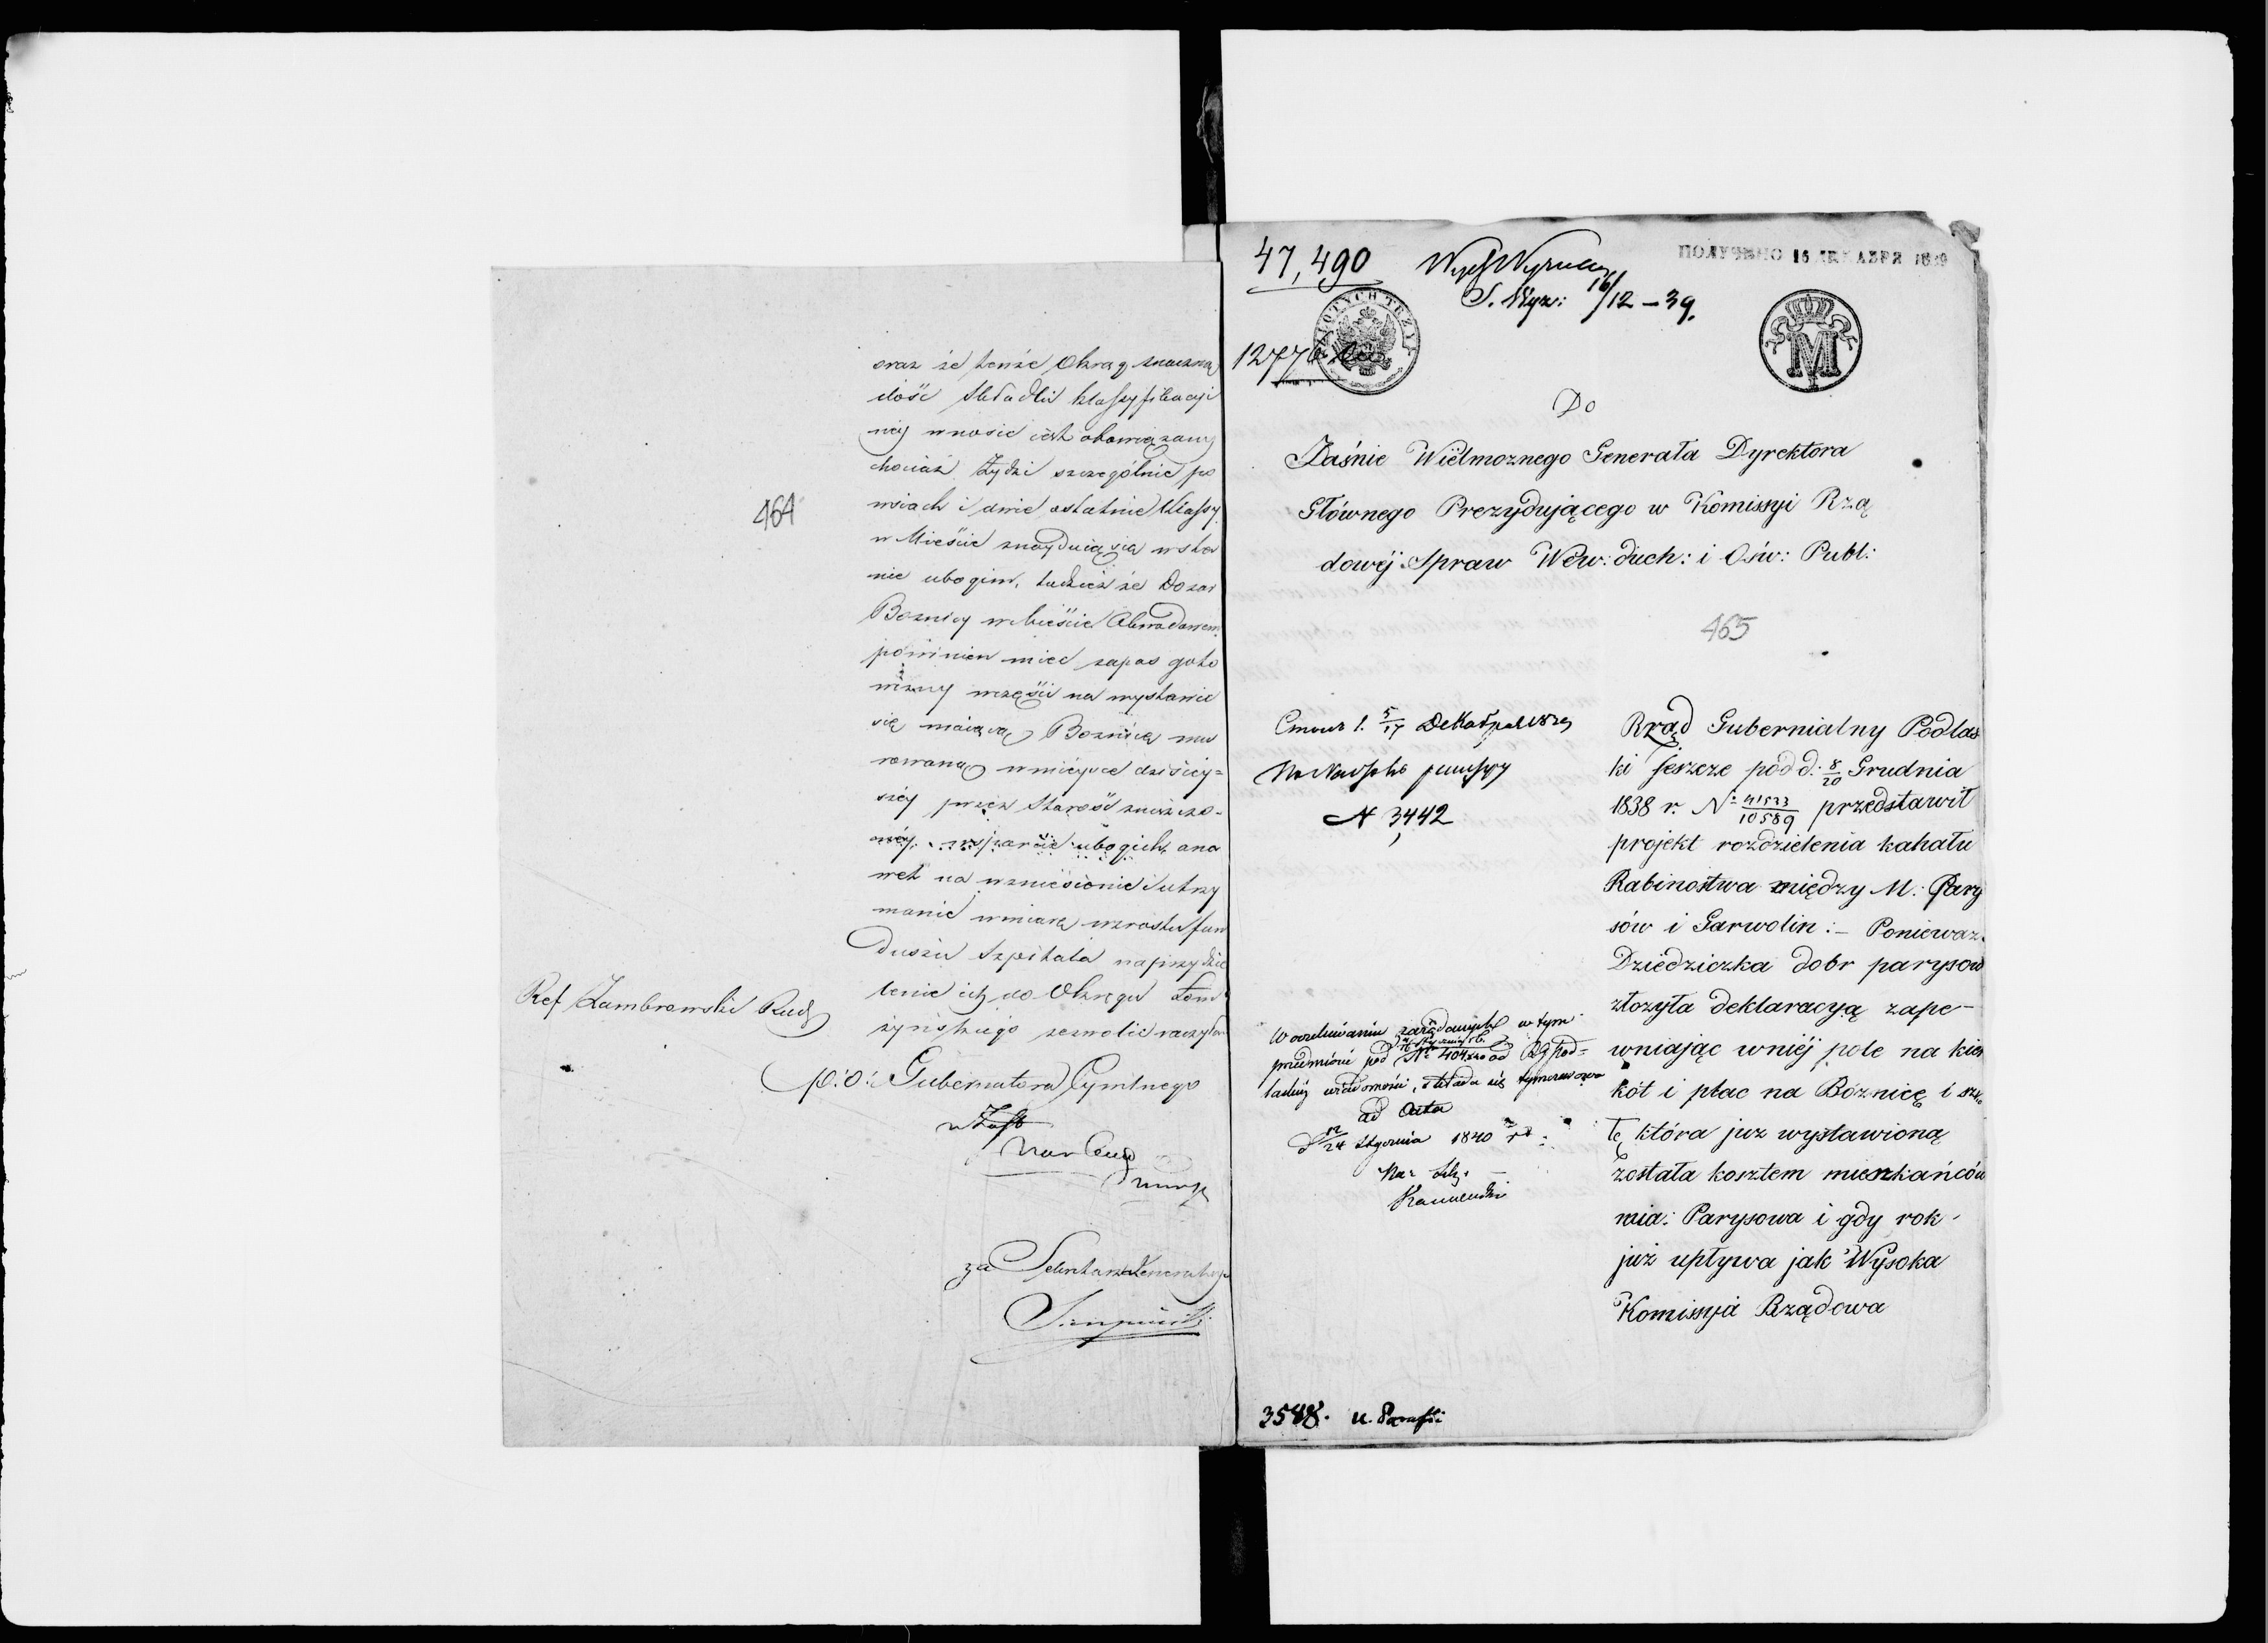 464
oraz że tenże Okrąg znaczną
ilość Składki klassyfikacyi
néj wnosić jest obowiązany
chociaż Żydzi szczególnie po
wsiach i dwie ostatnie Klassy
w Mieście znayduią się w sta
nie ubogim, tudzież że Dozor
Boznicy w Mieście
powinien mieć zapas goto
wizny w części na wystawie
się maiącą Boznicę mu
rowaną w mieysce dzisiey=
széy przez Starość zniszczo-
néy, wsparcie ubogich, ana
wet na wzniesienie i utrzy
manie w miarę wzrostu fun
duszu Szpitala na przydzie
lenie ich do Okręgu Łom
żyńskiego zezwolić raczyła
Ref Zambrowski
p.o: Gubernatora Cywilnego
w Zast
za Sekretarza Generalnego
47,490
S. Wyz: 16/12 - 39.
ПОЛУЧЕНО 16 ДЕКАБРЯ 1839
ZŁOTYCH TRZY
M
12776
Do
Jaśnie Wielmoznego Generała Dyrektora
Głównego Prezydującego w Komissyi Rzą
dowéj Spraw Wew: duch: i Ośw: Publ:
465
5/17
N 3442
Rząd Gubernialny Podlas
ki jeszcze pod d: 8/20 Grudnia
1838 r. N: 41533/10589 przedstawił
projekt rozdzielenia kahału
Rabinostwa między M: Pary
sów i Garwolin :- Poniewaz
Dziedziczka dobr parysow
złozyła deklaracyą zape-
wniając wniéj pole na kier
kót i płac na Bóznicę i szko
łę która juz wystawioną
została kosztem mieszkańców
mia: Parysowa i gdy rok
już upływa jak Wysoka
Komissyia Rządowa
W oczekiwaniu zażądanych w tym
przedmiocie pod N 404 od Rz Pod=
laskiej wiadomości, składa się tymczasowo
ad Acta
d 12/24 Stycznia 1840 r
Nac Sek.
3588.